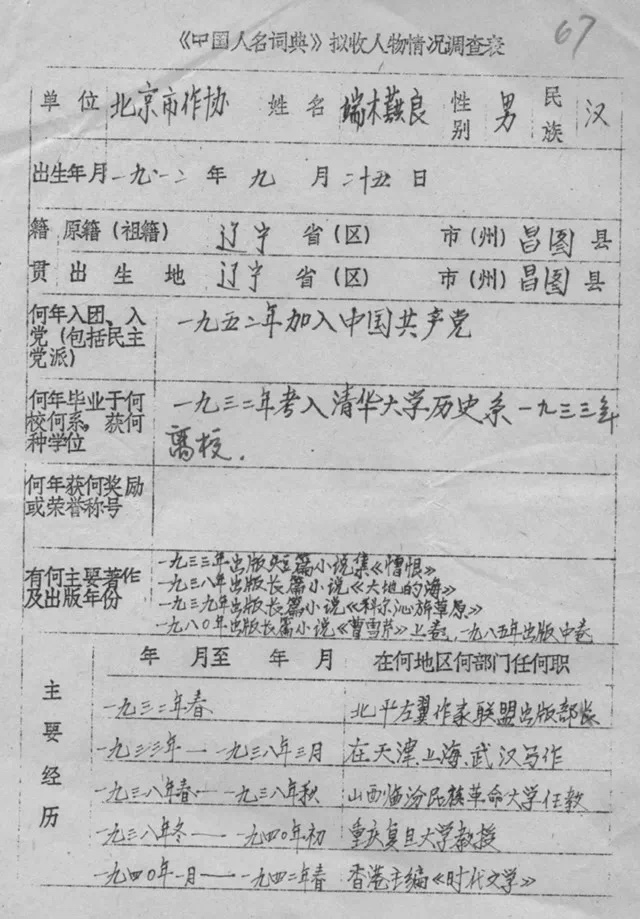 《中国人名词典》拟收人物情况调查表
67
单位 北京市作协 姓名 端木蕻良 性别 男 民族 汉
出生年月 一九一二 年 九 月 二十五 日
籍 原籍(祖籍) 辽宁 省(区) 市(州) 昌图 县
贯 出生地 辽宁 省(区) 市(州) 昌图 县
何年入团、入党(包括民主党派) 一九五二年加入中国共产党
何年毕业于何校何系,获何种学位 一九三二年考入清华大学历史系一九三三年
离校.
何年获何奖励或荣誉称号
有何主要著作及出版年份
一九三三年出版短篇小说集《憎恨》
一九三八年出版长篇小说《大地的海》
一九三九年出版长篇小说《科尔沁旗草原》
一九八0年出版长篇小说《曹雪芹》上卷,一九八五年出版中卷
主要经历
年 月至 年 月 在何地区何部门任何职
一九三二年春 北平左翼作家联盟出版部长
一九三三年——一九三八年三月 在天津、上海、武汉写作
一九三八年春——一九三八年秋 山西临汾民族革命大学任教
一九三八年冬——一九四0年初 重庆复旦大学教授
一九四0年一月——一九四二年春 香港主编《时代文学》